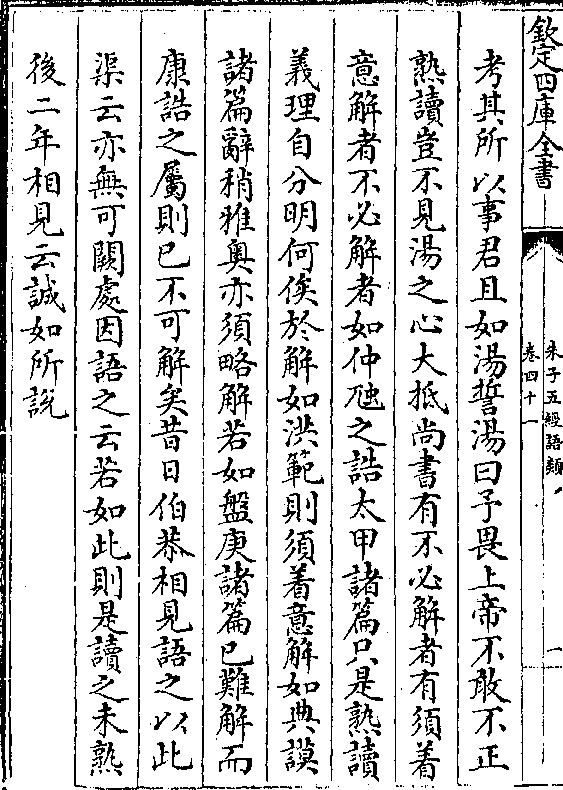 欽定四庫全書
朱子五經語類
卷四十一
一
考其所以事君且如湯誓湯曰予畏上帝不敢不正
熟讀豈不見湯之心大抵尚書有不必解者有須着
意解者不必解者如仲虺之誥太甲諸篇只是熟讀
義理自分明何俟於解如洪範則須着意解如典謨
諸篇辭稍雅奥亦須略解若如盤庚諸篇已難解而
康誥之屬則已不可解矣昔日伯恭相見語之以此
渠云亦無可闕處因語之云若如此則是讀之未熟
後二年相見云誠如所説